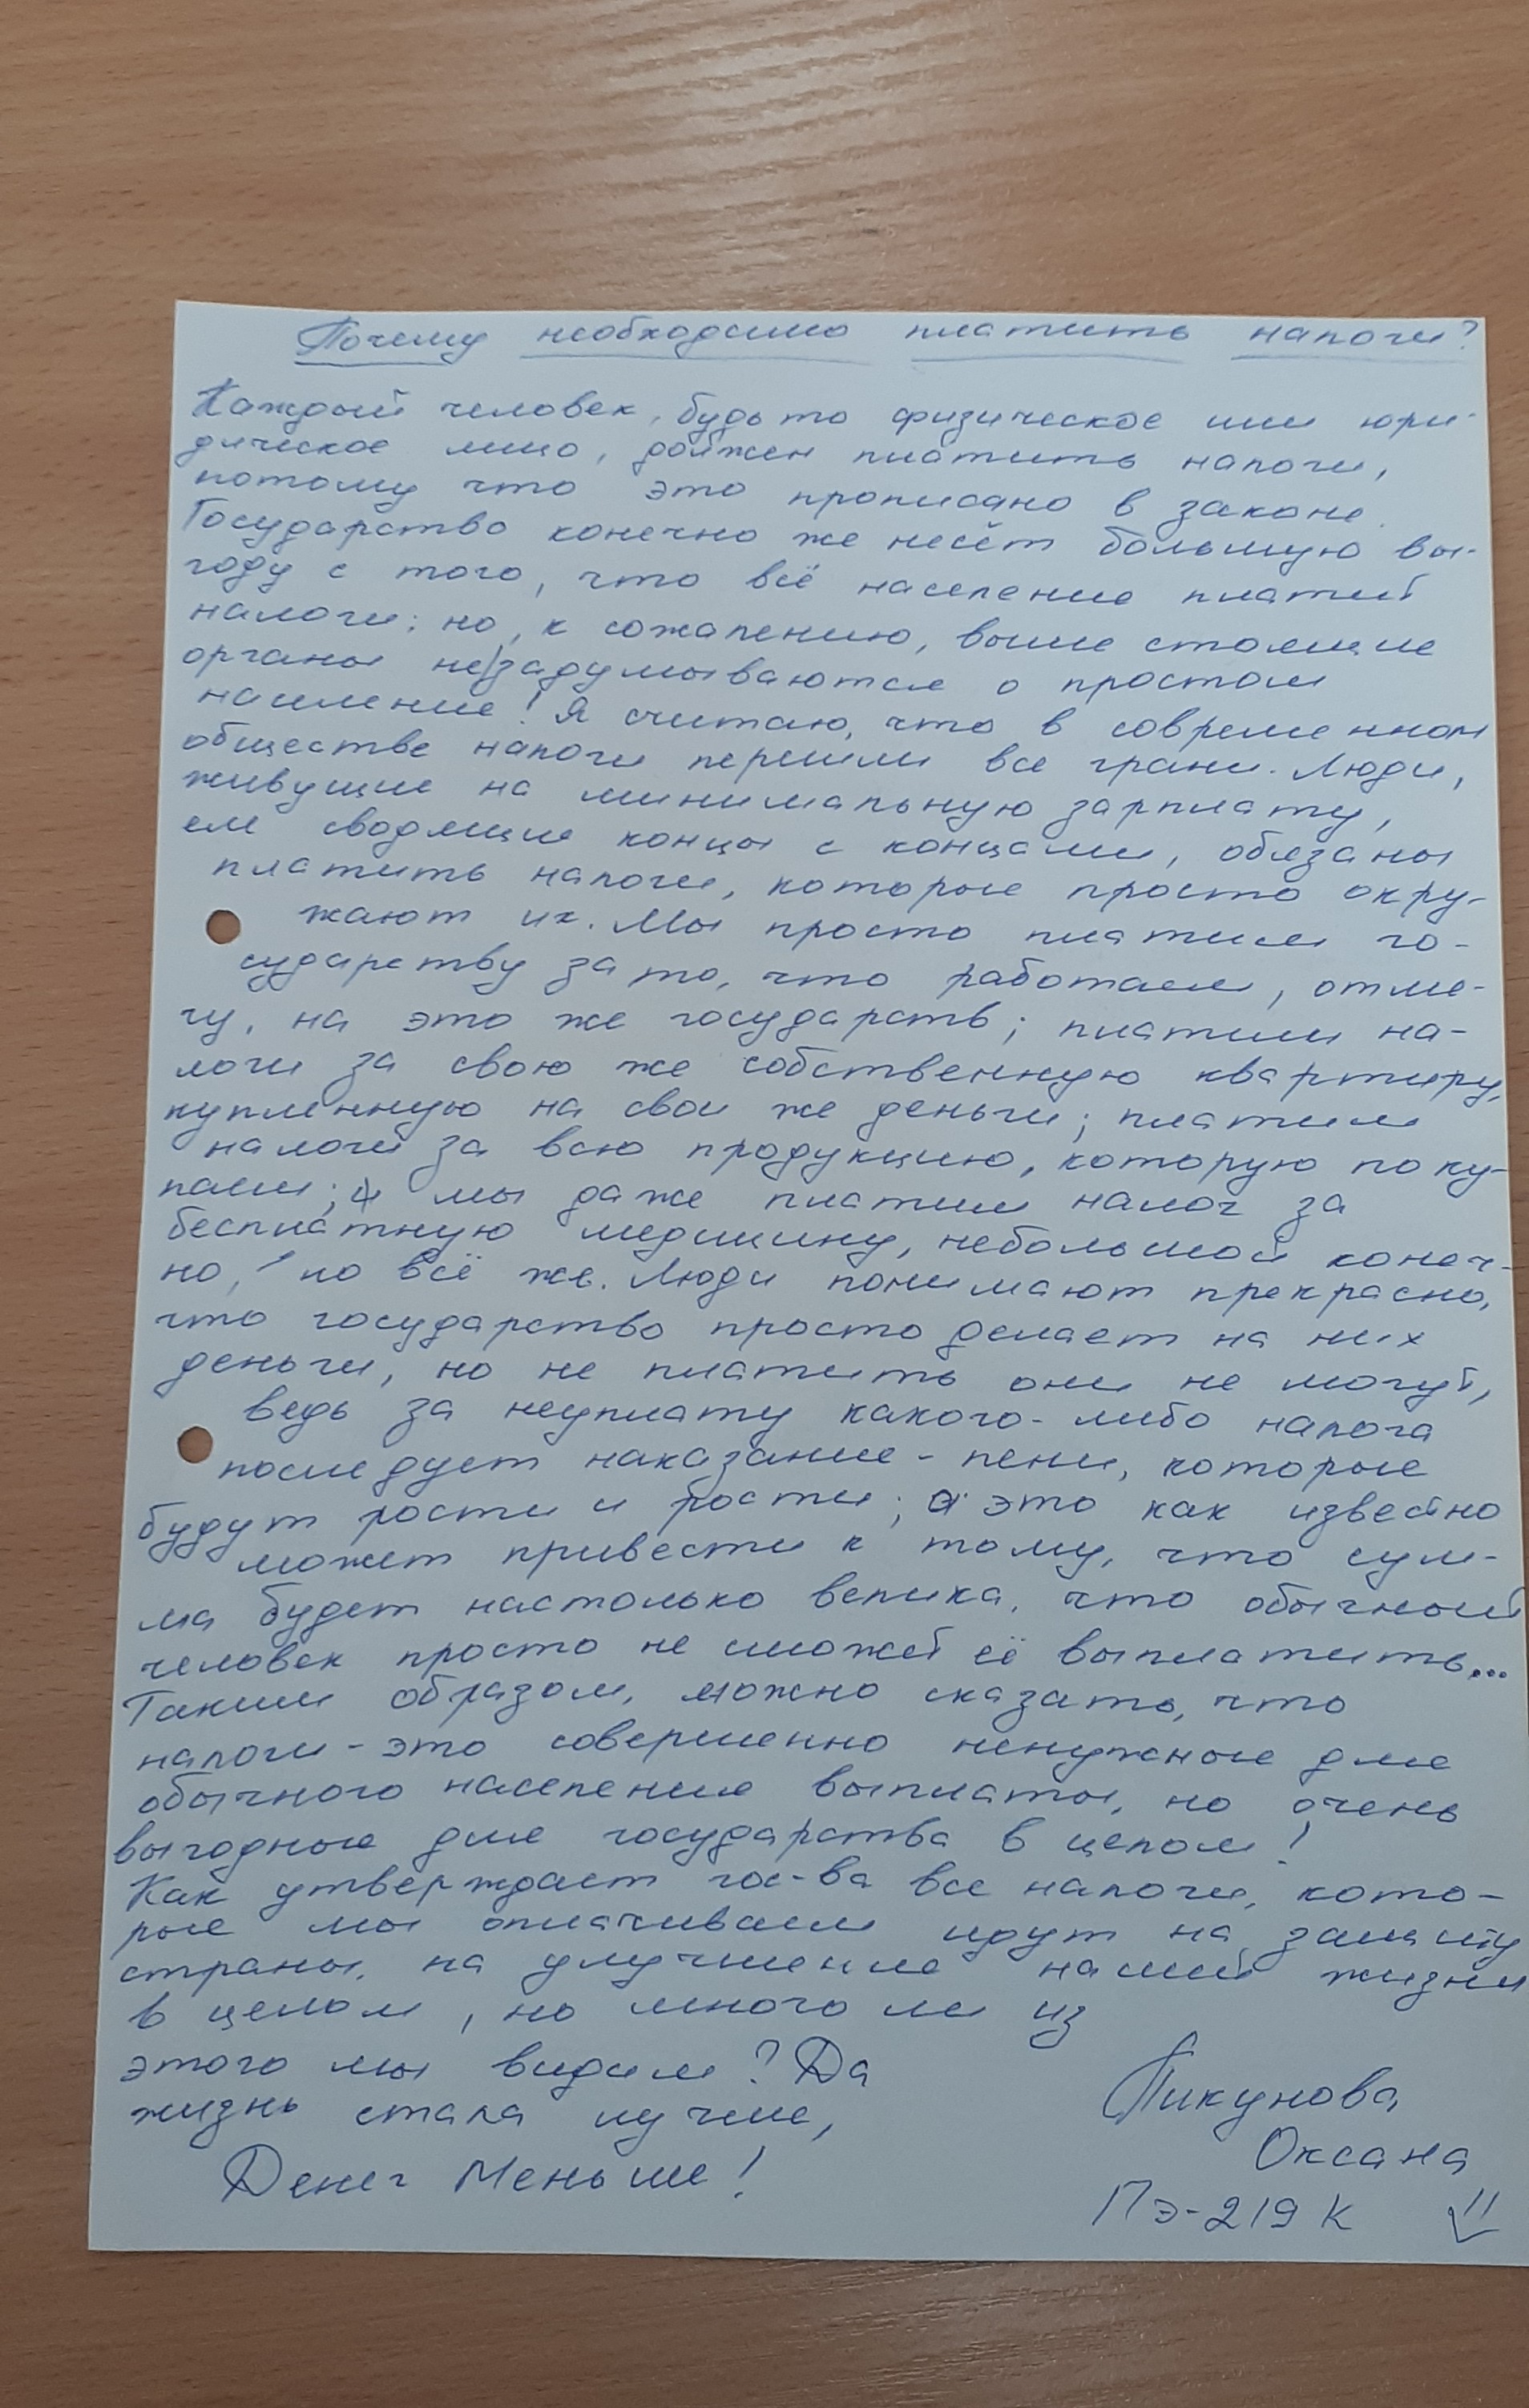 Почему необходимо платить налоги?
Каждый человек, будь то физическое или юри-
дическое лицо, должен платить налоги,
потому что это прописано в законе.
Государство конечно же несёт большую вы-
году с того, что всё население платит
налоги; но, к сожалению, выше стоящие
органы не задумываются о простом
население! Я считаю, что в современном
обществе налоги перешли все грани. Люди,
живущие на минимальную зарплату,
ем сводящие концы с концами, обязаны
платить налоги, которые просто окру-
жают их. Мы просто платим го-
сударству за то, что работаем, отме-
чу, на это же государств; платим на-
логи за свою же собственную квартиру,
купленную на свои же деньги; платим
налоги за всю продукцию, которую поку-
паем; и мы даже платим налог за
бесплатную медицину, небольшой конеч-
но, но всё же. Люди понимают прекрасно,
что государство просто делает на них
деньги, но не платить они не могут,
ведь за неуплату какого-либо налога
последует наказание - пени, которые
будут рости и рости; а это как известно
может привести к тому, что сум-
ма будет настолько велика, что обычный
человек просто не сможет её выплатить...
Таким образом, можно сказать, что
налоги - это совершенно ненужные для
обычного население выплаты, но очень
выгодные для государства в целом!
Как утверждает гос-ва все налоги, кото-
рые мы оплачиваем идут на защиту
страны, на улучшение нашей жизни
в целом, но много ли из
этого мы видим? Да
жизнь стала лучше,
Денег Меньше!
Пикунова
Оксана
ПЭ-219 К